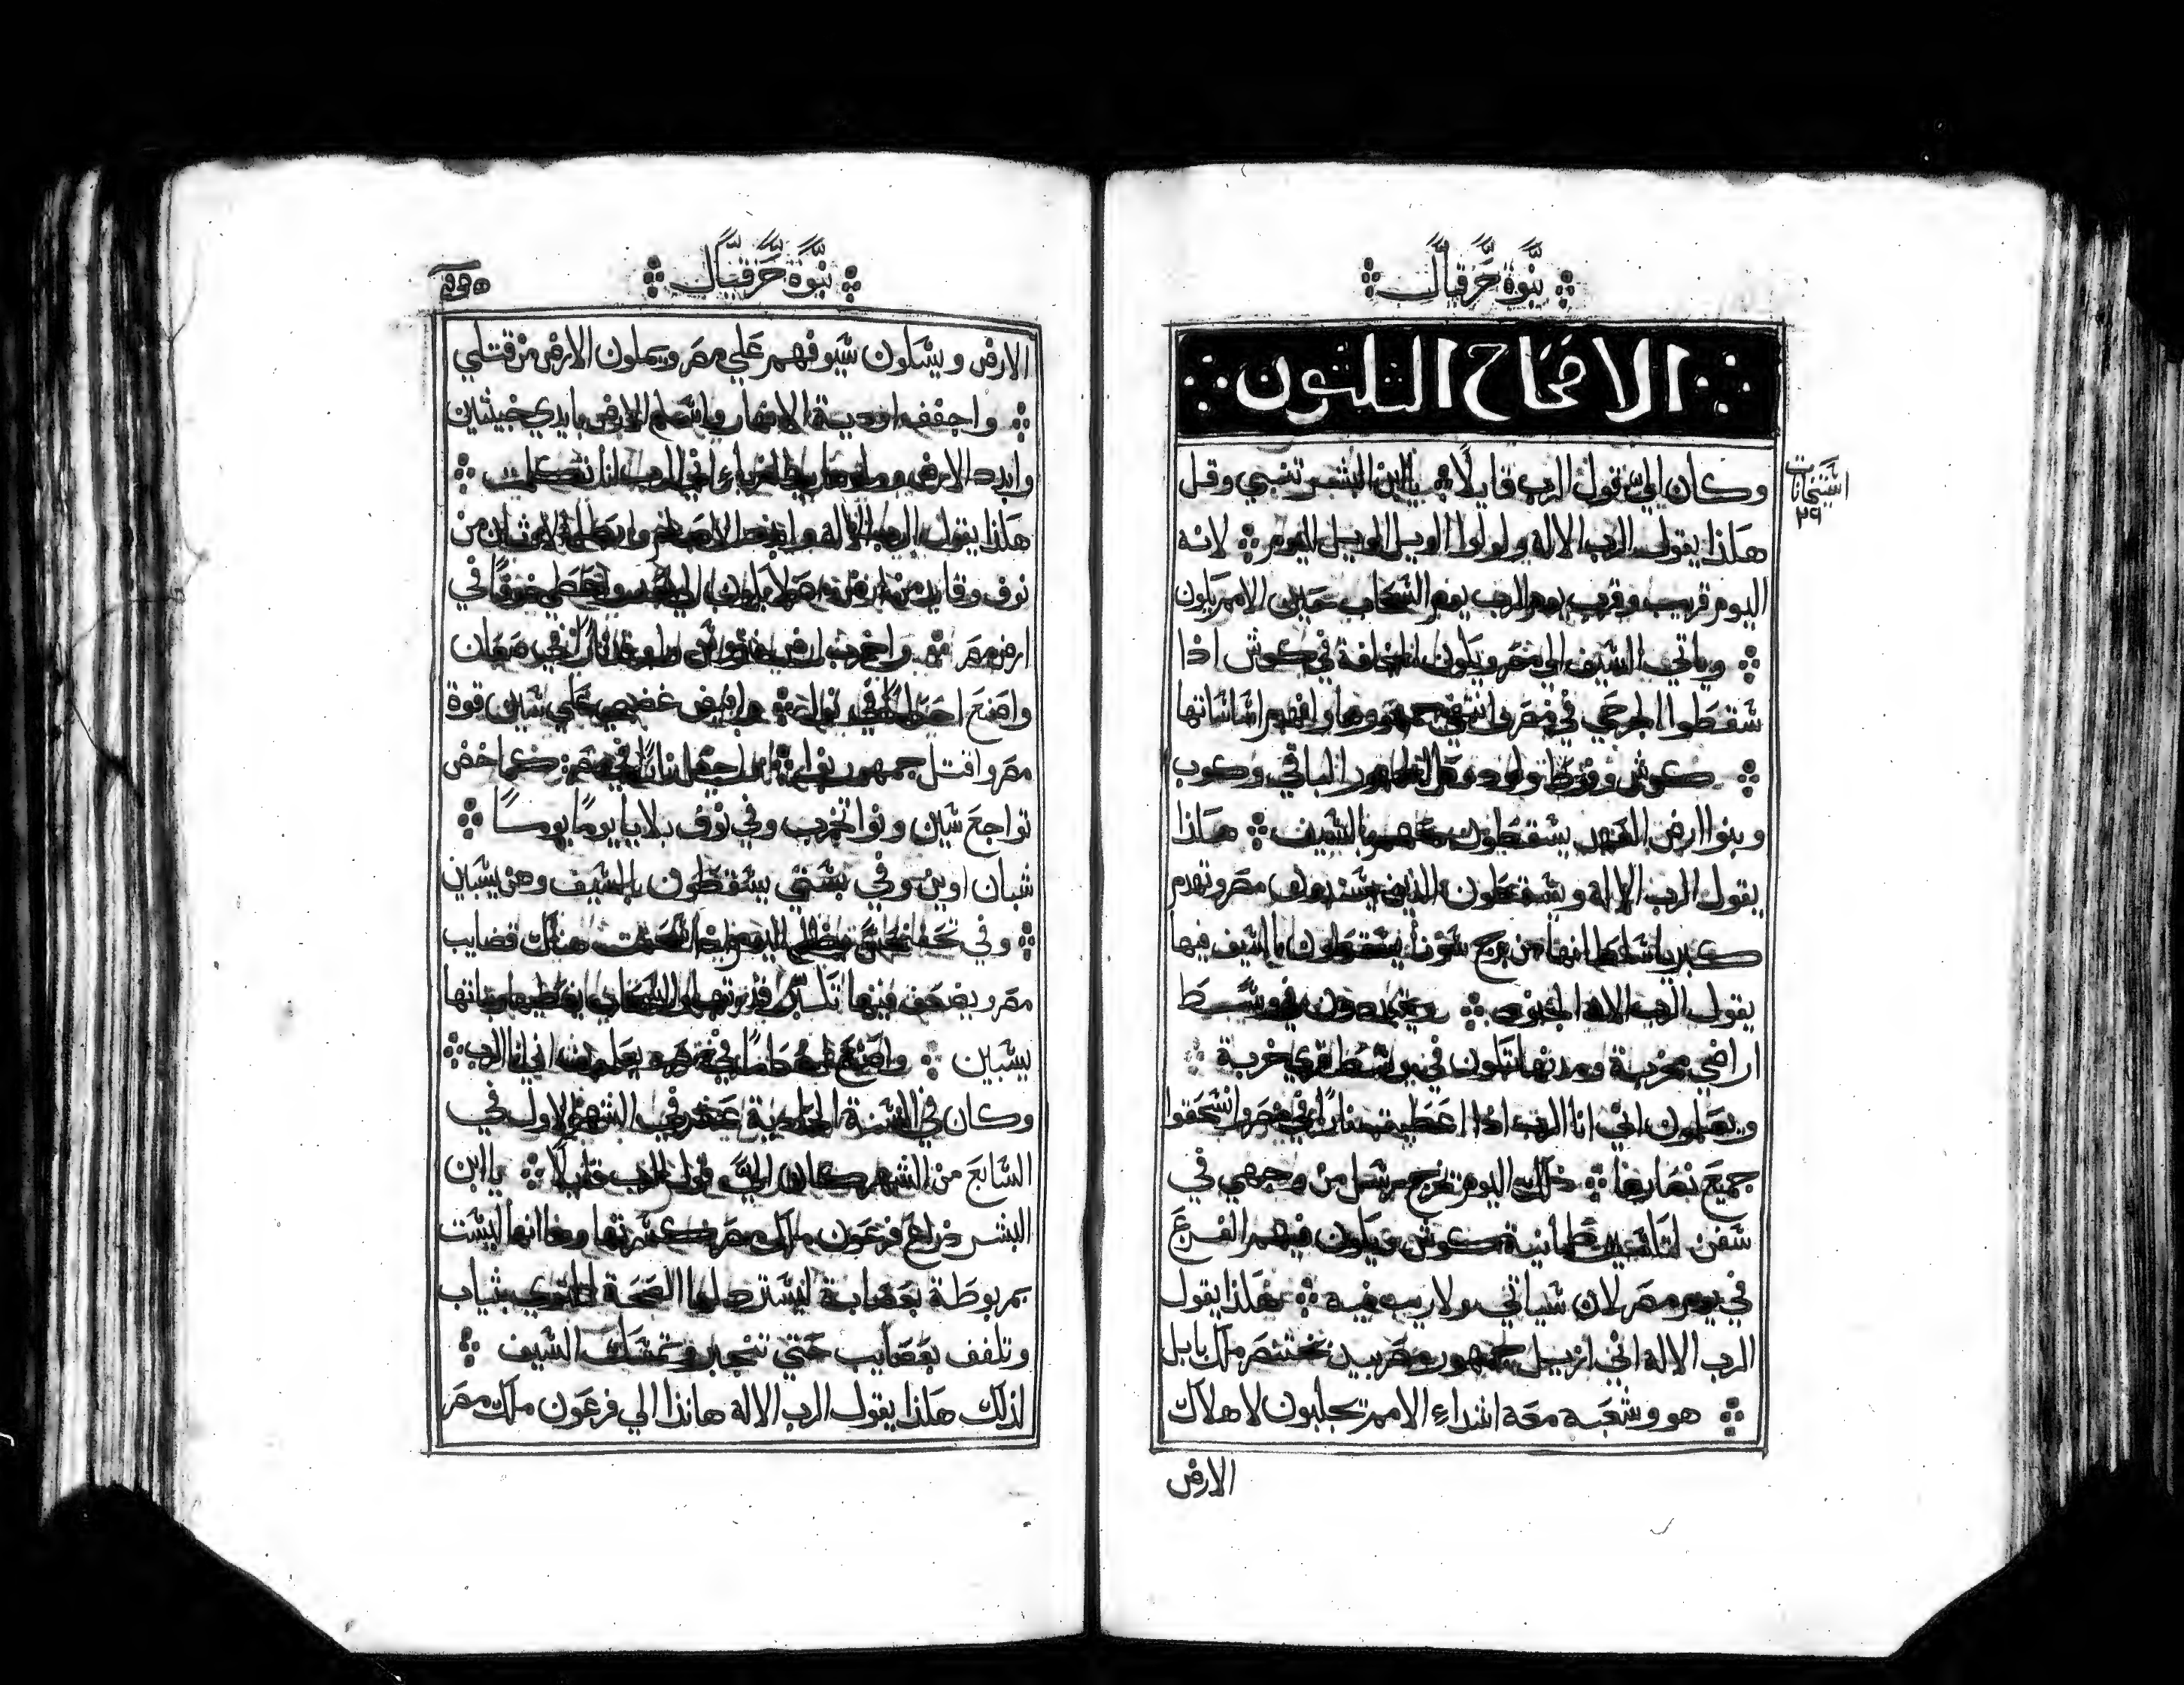 نبوة حزقيال
الاصحاح الثلثون
استخانات
٢٩
وكان الي قول الرب قايلا يا ابن البشر تنبي وقل
هكذا يقول الرب الاله ولولوا الويل الويل اليوم لانه
اليوم قريب وقرب يوم الرب يوم السحاب حين الامم يكون
وياتي السيف الي مصر ويكون المخافة في كوش اذا
سقطوا الجرحي في مصر وانتفي جمهورها وانهدم اساساتها
كوش وفوط ولود وكل الجمهور الباقي وكوب
وبنوا ارض العهد يسقطون معهم بالسيف هكذا
يقول الرب الاله وسقطون الذين يسندون مصر وتهدم
كبريا سلطانها من برج سونا يسقطون بالسيف فيها
يقول الرب الاله الجنود ويتبددون في وسط
اراضي مخربة ومدنها تكون في وسط قري خربة
ويعلمون اني انا الرب اذا اعطيت نارا في مصر وانسحقوا
جميع نصارها ذلك اليوم تخرج رسل من وجهي في
سفن لتلاشين طمانينة كوش ويكون فيهم الفزع
في يوم مصر لان سياتي ولا ريب فيه هكذا يقول
الرب الاله اني ازيل جمهور مصر بيد بختنصر ملك بابل
هو وشعبه معه اشداء الامم تجلبون لاهلاك
الارض
نبوة حزقيال
الارض ويسلون سيوفهم علي مصر ويملون الارض من قتلي
واجفف اودية الانهار واسلم الارض بايدي خبيثين
وابدد الارض وملوها بيد الغرباء اني الرب انا تكلمت
هكذا يقول الرب الاله وابيد الاصنام وابطل الاوثان من
نوف وقايد من ارض مصر لا يكون الي بعد واعطي خوفا في
ارض مصر واخرب ارض فتروس واعطي نارا في صعان
واصنع احكاما في نوا وافيض غضبي علي سين قوة
مصر واقتل جمهور نوا واجعل نارا في مصر كما خض
تواجع سين ونوا تخرب وفي نوف بلايا يوما يوما
شبان اوين وفي بستي يسقطون بالسيف وهن يسبين
وفي تحفنحس يظلم اليوم اذا سحقت هناك قضايب
مصر ويضعف فيها تكبر قدرتها والسحاب يغطيها وبناتها
يسبين واصنع احكاما في مصر ويعلمون اني انا الرب
وكان في السنة الحادية عشر في الشهر الاول في
السابع من الشهر كان الي قول الرب قايلا يا ابن
البشر ذراع فرعون ملك مصر كسرتها وها انها ليست
بمربوطة بعصابة لتسترد لها الصحة لتتوي بثياب
وتلفف بعصايب حتي تنجبر وتمسك السيف
لذلك هكذا يقول الرب الاله هانذا الي فرعون ملك مصر